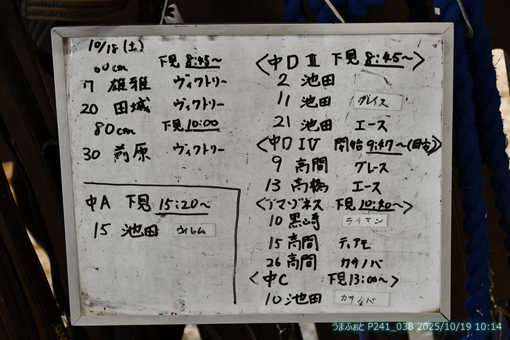 10/18(土)
60cm 下見 8:45〜
7 雄雅 ヴィクトリー
20 田城 ヴィクトリー
80cm 下見 10:00
30 前原 ヴィクトリー
中A 下見 15:20〜
15 池田
<中D Ⅱ 下見 8:45〜>
2 池田
11 池田 グレイス
21 池田 エース
<中D Ⅳ 開始 9:47〜
9 高間 グレース
13 高橋 エース
下見 10:40〜>
10 黒崎 ライアン
15 高間 ディアモ
26 高間 カサノバ
<中C 下見 13:00〜>
10 池田 カサノバ
うまふぉと P241_038 2025/10/19 10:14